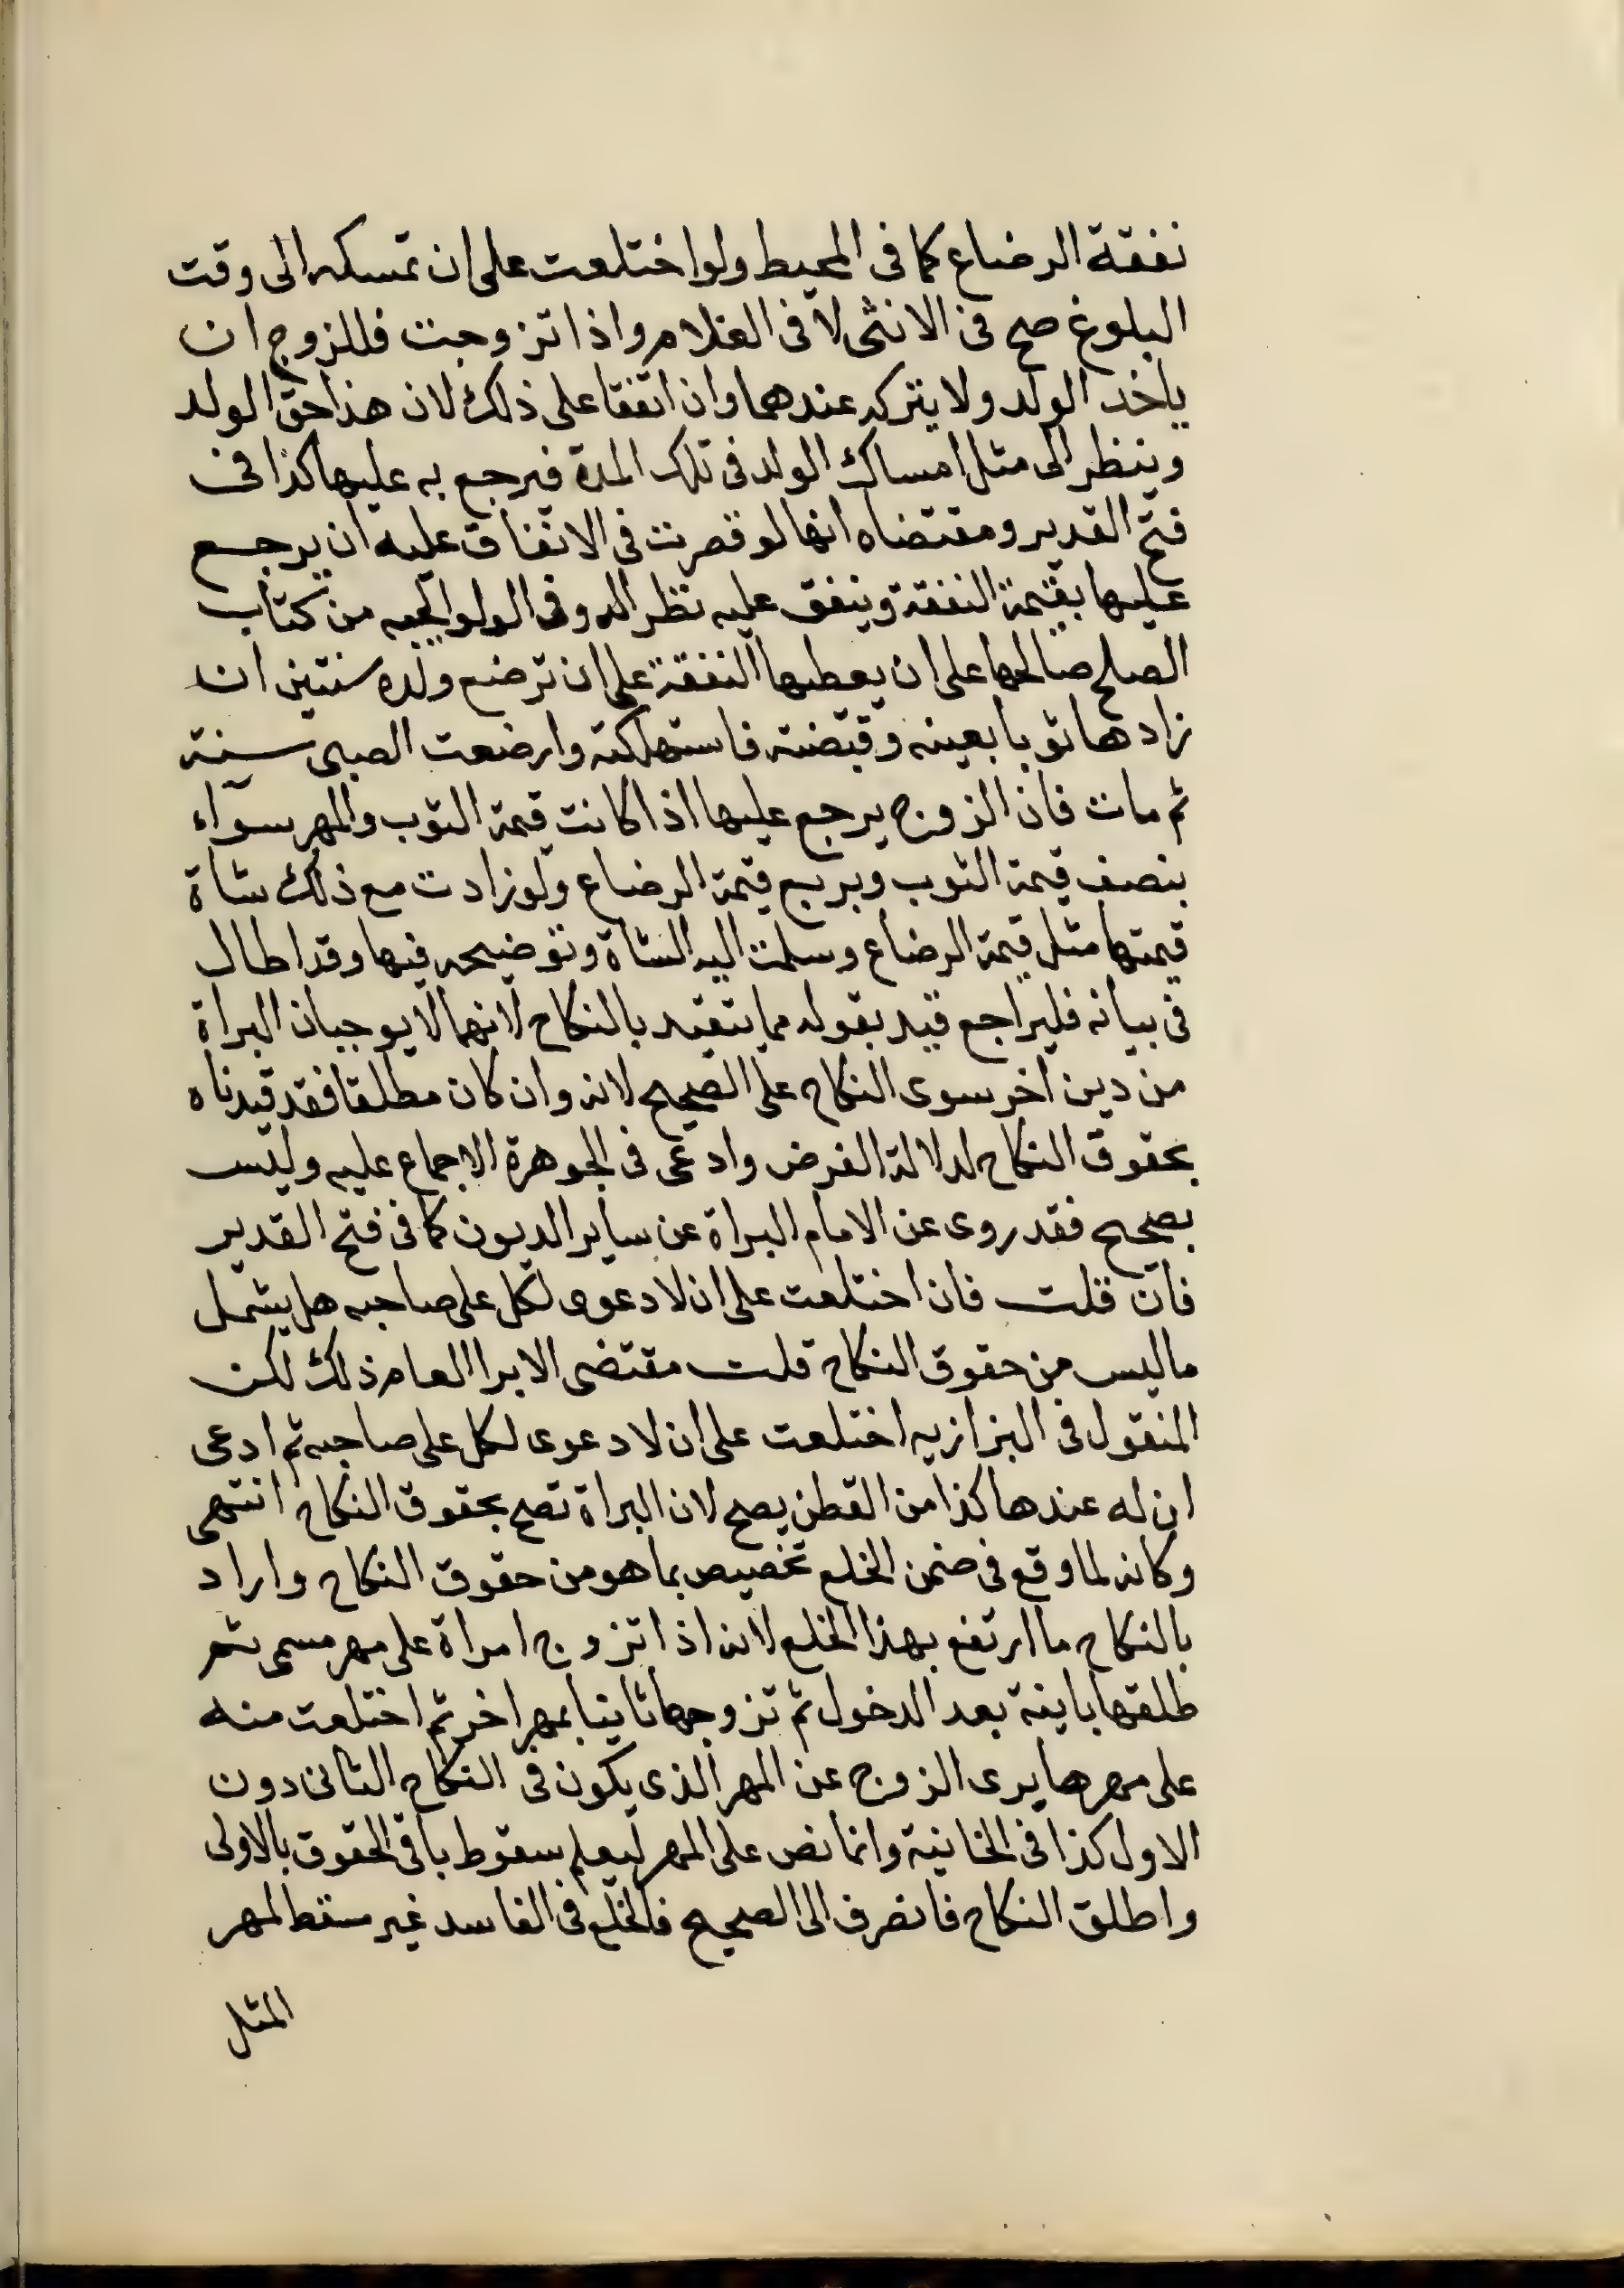 نفقة الرضاع كما فى المحيط ولو اختلعت على ان تمسكه الى وقت
البلوغ صح فى الانثى لا فى الغلام واذا تزوجت فللزوج ان
ياخذ الولد ولا يتركه عندهما وان اتفقا على ذلك لان هذا حق الولد
وينظر الى مثل امساك الولد فى تلك المدة فيرجع به عليها كذا فى
فتح القدير ومقتضاه انها لو قصرت فى الانفاق عليه ان يرجع
عليها بقيمة النفقة وينفق عليه نظرا له وفى الولوالجيه من كتاب
الصلح صالحها على ان يعطيها النفقة على ان ترضع ولده سنتين ان
زادها ثوبا بعينه وقبضته فاستهلكته وارضعت الصبى سنة
ثم مات فان الزوج يرجع عليها اذا كانت قيمة الثوب والمهر سواء
بنصف قيمة الثوب وبربع قيمة الرضاع ولو زادت مع ذلك شاة
قيمتها مثل قيمة الرضاع وسلمت اليه الشاة وتوضيحه فيها وقد اطال
فى بيانه فليراجع قيد بقوله مما يتقيد بالنكاح لانهما لا يوجبان البراة
من دين اخر سوى النكاح على الصحيح لانه وان كان مطلقا فقد قيدناه
بحقوق النكاح لدلالة الغرض وادعى فى الجوهرة الاجماع عليه وليس
بصحيح فقد روى عن الامام البراة عن ساير الديون كما فى فتح القدير
فان قلت فان اختلعت على ان لا دعوى لكل على صاحبه هل يشمل
ما ليس من حقوق النكاح قلت مقتضى الابرا العام ذلك لكن
المنقول فى البزازيه اختلعت على ان لا دعوى لكل على صاحبه ثم ادعى
ان له عندها كذا من القطن يصح لان البراة تصح بحقوق النكاح انتهى
وكانه لما وقع فى ضمن الخلع تخصيص بما هو من حقوق النكاح واراد
بالنكاح ما ارتفع بهذا الخلع لانه اذا تزوج امراة على مهر مسمى ثم
طلقها باينة بعد الدخول ثم تزوجها ثانيا بمهر اخر ثم اختلعت منه
على مهرها يبرى الزوج عن المهر الذى يكون فى النكاح الثانى دون
الاول كذا فى الخانية وانما نص على المهر ليعلم سقوط باقى الحقوق بالاولى
واطلق النكاح فانصرف الى الصحيح فالخلع فى الفاسد غير مسقط لمهر
المثل